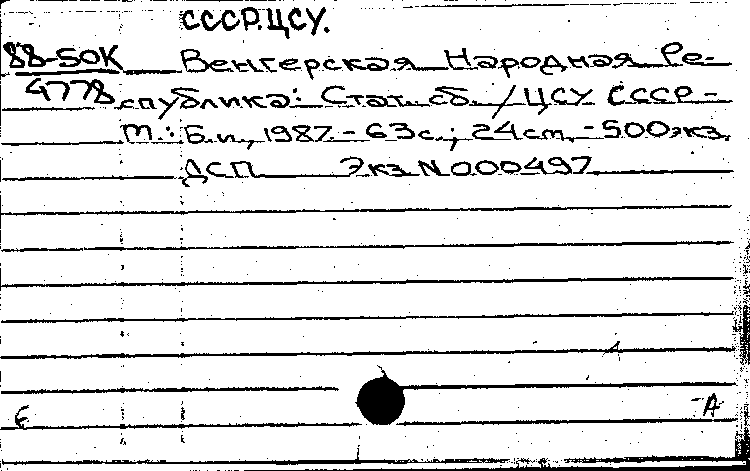 СССР.ЦСУ.
88-50К Венгерская Народная Ре-
4778 спублика: Стат. сб. / ЦСУ СССР -
М.: Б.и., 1987. - 63с.; 24см. - 500экз.
ДСП Экз N 000497.
Є -А